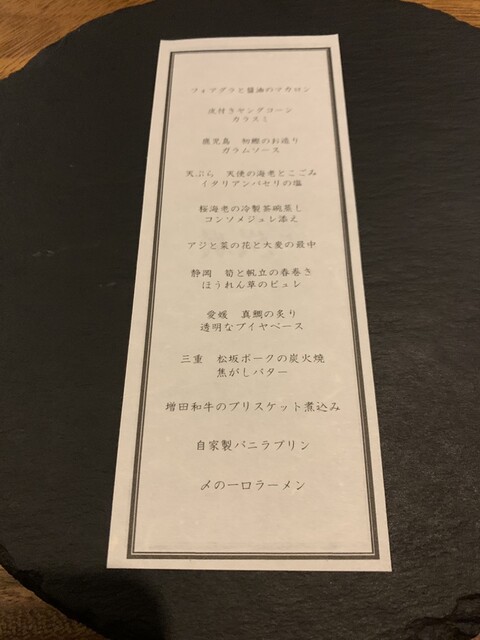 フォアグラと醤油のマカロン
皮付きヤングコーン
カラスミ
鹿児島　初鰹のお造り
ガラムソース
天ぷら　天使の海老とこごみ
イタリアンパセリの塩
桜海老の冷製茶碗蒸し
コンソメジュレ添え
アジと菜の花と大麦の最中
静岡　筍と帆立の春巻き
ほうれん草のピュレ
愛媛　真鯛の炙り
透明なブイヤベース
三重　松坂ポークの炭火焼
焦がしバター
増田和牛のブリスケット煮込み
自家製バニラプリン
〆の一口ラーメン